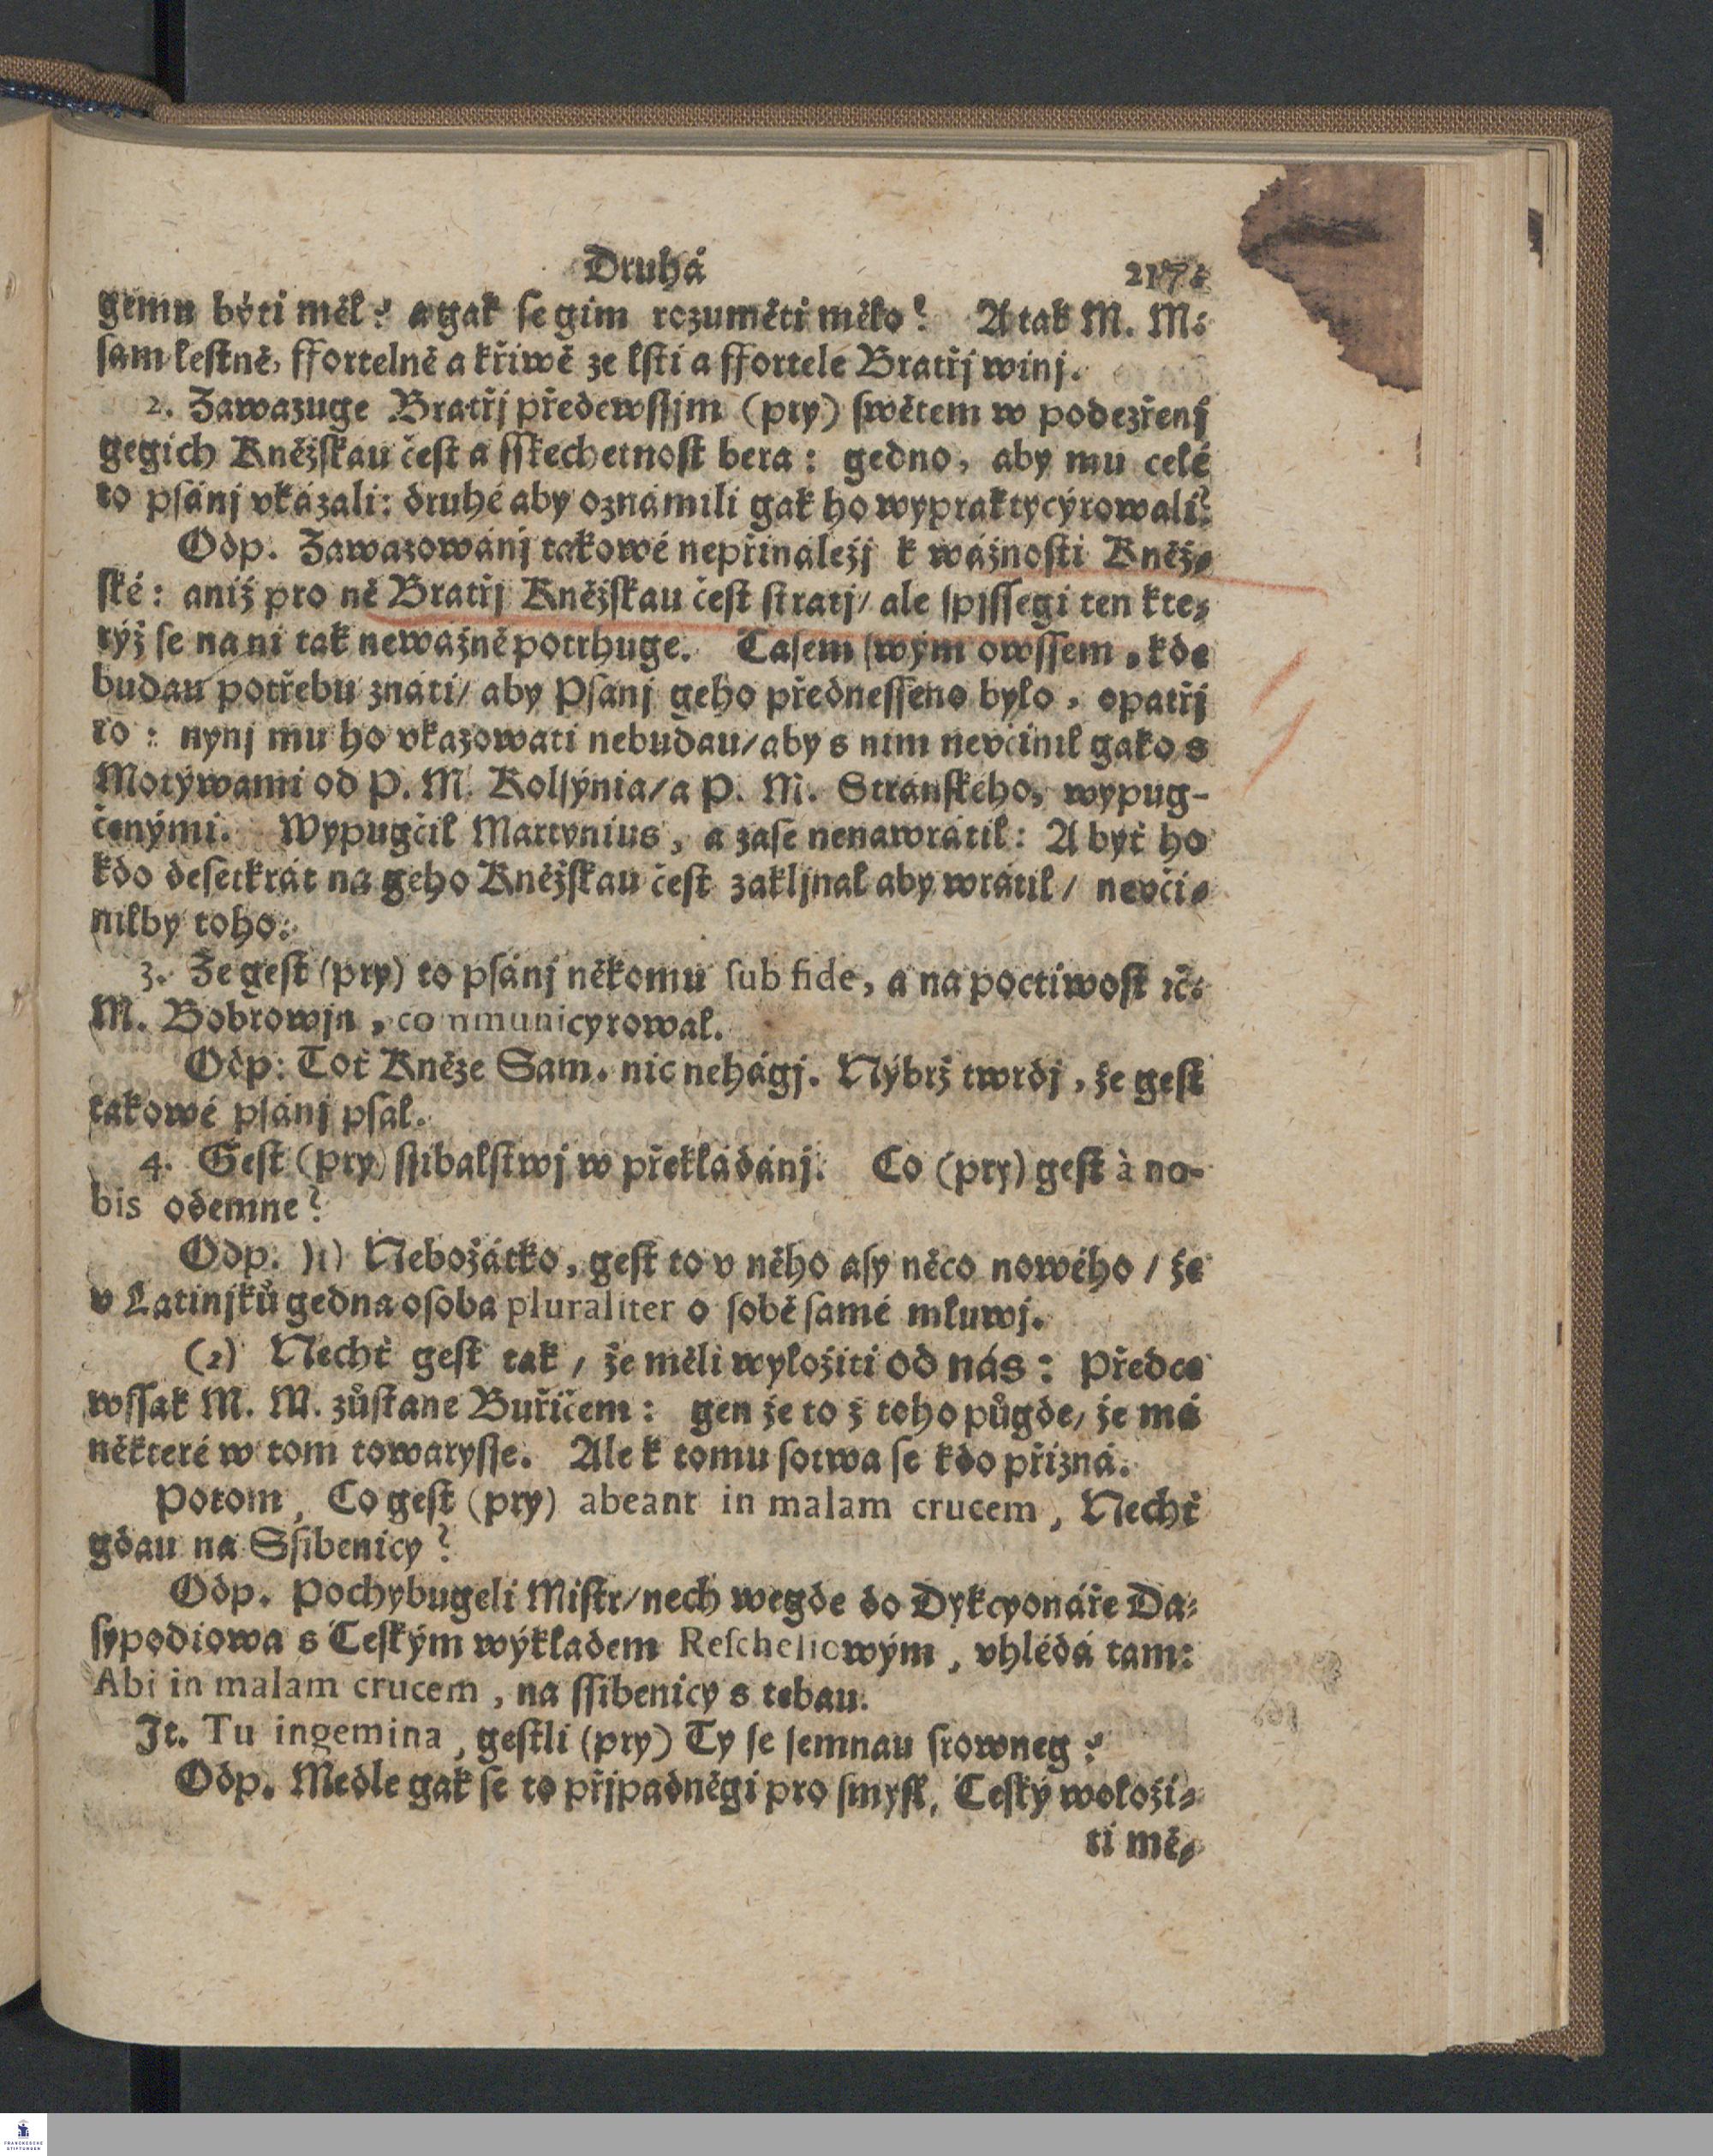 Druhá 217.
gemu býti měl? a gak se gim rozuměti mělo? A tak M. M.
sam lestně, ffortelně a křiwě ze lsti a ffortele Bratřj winj.
2. Zawazuge Bratřj předewssjm (pry) swětem w podezřenj
gegich Kněžskau čest a sslechetnost bera: gedno, aby mu celé
to psánj vkázali: druhé aby oznámili gak ho wypraktycýrowali?
Odp. Zawazowánj takowé nepřináležj k wážnosti Kněž-
ské: aniž pro ně Bratřj Kněžskau čest stratj / ale spjssegi ten kte-
rýž se na ni tak newážně potrhuge. Časem swým owssem, kde
budau potřebu znáti / aby Psanj geho přednesseno bylo, opatřj
to: nynj mu ho vkazowati nebudau / aby s nim nevčinil gako s
Motýwami od P. M. Kolsýnia / a P. M. Stránského, wypug-
čenými. Wypugčil Martynius, a zase nenawrátil: A byť ho
kdo desetkrát na geho Kněžskau čest zakljnal aby wrátil / nevči-
nilby toho.
3. Že gest (pry) to psánj někomu sub fide, a na poctiwost ꝛč.
M. Bobrowjn, communicyrowal.
Odp: Toť Kněze Sam. nic nehágj. Nýbrž twrdj, že gest
takowé psánj psal.
4. Gest (pry) ssibalstwj w překládánj. Co (pry) gest à no-
bis odemne?
Odp. )1) Nebožátko, gest to v něho asy něco nowého / že
v Latinjků gedna osoba pluraliter o sobě samé mluwj.
(2) Nechť gest tak, že měli wyložiti od nás: Předce
wssak M. M. zůstane Buřičem: gen že to z toho půgde, že má
některé w tom towarysse. Ale k tomu sotwa se kdo přizná.
Potom, Co gest (pry) abeant in malam crucem, Nechť
gdau na Ssibenicy?
Odp. Pochybugeli Mistr / nech wegde do Dykcyonáře Da-
sypodiowa s Českým wýkladem Rescheliowým, vhlédá tam:
Abi in malam crucem, na ssibenicy s tebau.
Jt. Tu ingemina, gestli (pry) Ty se semnau srowneg?
Odp. Medle gak se to přjpadněgi pro smysl, Český woloži-
ti mě-
FRANCKESCHE
STIFTUNGEN